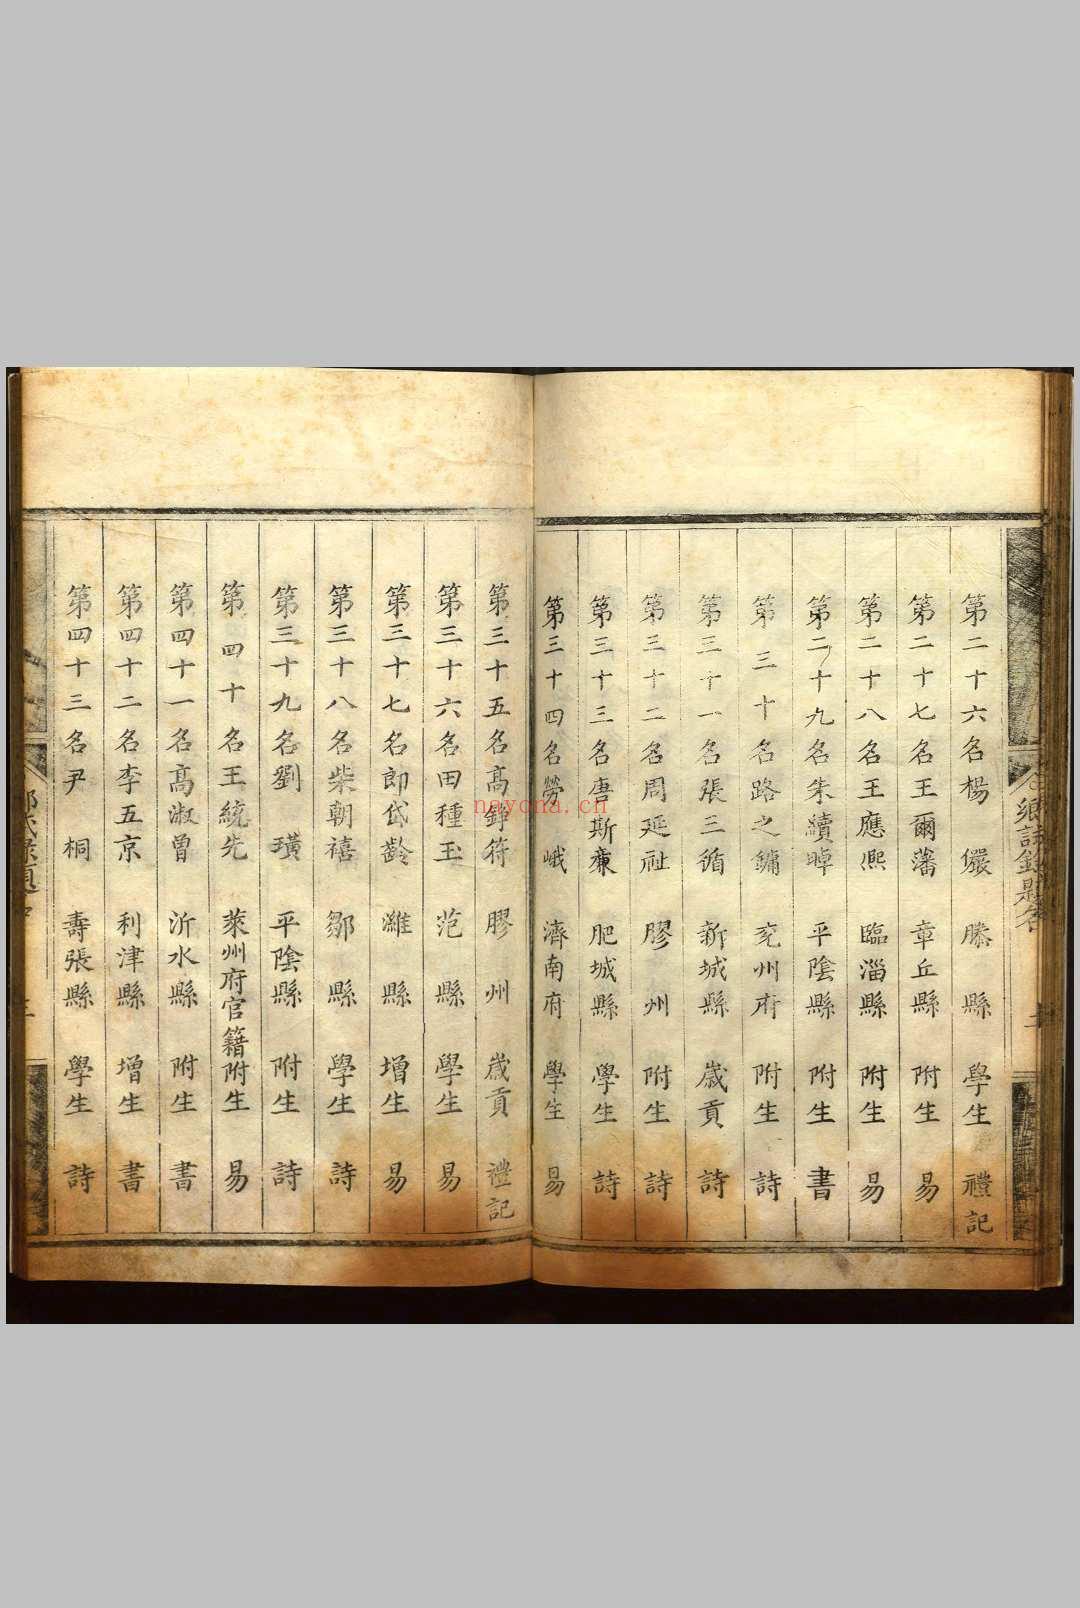 第二十六名楊儼 滕縣 學生 禮記
第二十七名王爾藩 章丘縣 附生 易
第二十八名王應熙 臨淄縣 附生 易
第二十九名朱續晫 平陰縣 附生 書
第三十名路之鏞 兗州府 附生 詩
第三十一名張三循 新城縣 歲貢 詩
第三十二名周延祉 膠州 附生 詩
第三十三名唐斯廉 肥城縣 學生 詩
第三十四名勞峨 濟南府 學生 易
第三十五名高錚符 膠州 歲貢 禮記
第三十六名田種玉 范縣 學生 易
第三十七名郎岱齡 濰縣 增生 易
第三十八名柴朝禧 鄒縣 學生 詩
第三十九名劉璜 平陰縣 附生 詩
第四十名王統先 萊州府官籍附生 易
第四十一名高淑曾 沂水縣 附生 書
第四十二名李五京 利津縣 增生 書
第四十三名尹桐 壽張縣 學生 詩
鄉試錄題名
nayona.cn